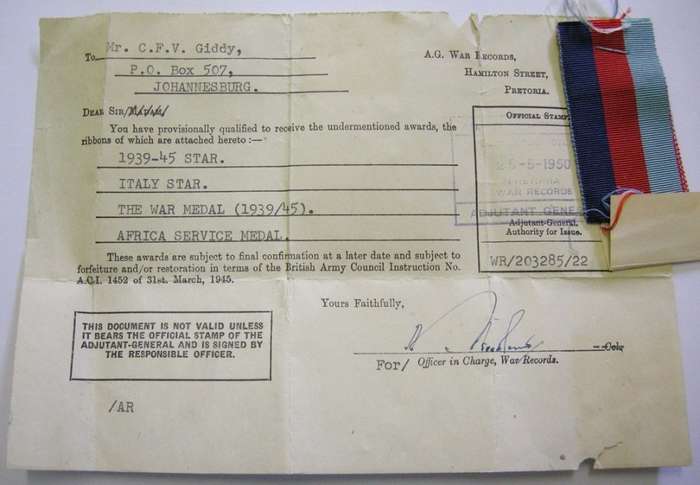 To Mr. C.F.V. Giddy,
P.O. Box 507,
JOHANNESBURG.
A.G. WAR RECORDS,
HAMILTON STREET,
PRETORIA.
DEAR SIR/
You have provisionally qualified to receive the undermentioned awards, the
ribbons of which are attached hereto :—
1939-45 STAR.
ITALY STAR.
THE WAR MEDAL (1939/45).
AFRICA SERVICE MEDAL.
These awards are subject to final confirmation at a later date and subject to
forfeiture and/or restoration in terms of the British Army Council Instruction No.
A.C.I. 1452 of 31st. March, 1945.
OFFICIAL STAMP
-5-1950
WAR RECORDS
ADJUTANT GENE
Adjutant-General.
Authority for Issue.
WR/203285/22
Yours Faithfully,
Col.
For/ Officer in Charge, War Records.
THIS DOCUMENT IS NOT VALID UNLESS
IT BEARS THE OFFICIAL STAMP OF THE
ADJUTANT-GENERAL AND IS SIGNED BY
THE RESPONSIBLE OFFICER.
/AR